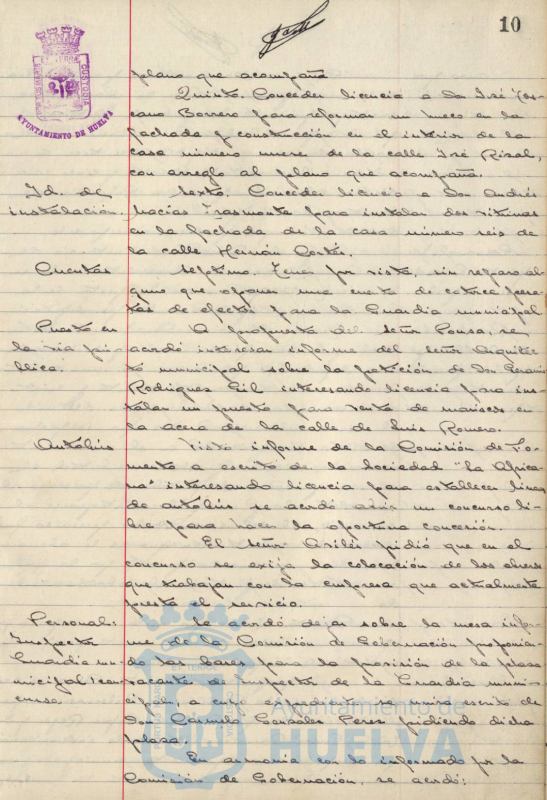 10
AYUNTAMIENTO DE HUELVA
plano que acompaña
Quinto. Conceder licencia a Don José
cano Borrero para reformar un hueco en la
fachada y construcción en el interior de la
casa número nueve de la calle José Rizal,
con arreglo al plano que acompaña.
Id. de
instalación.
Sexto. Conceder licencia a Don Andrés
Macías Trasmonte para instalar dos vitrinas
en la fachada de la casa número seis de
la calle Hernán Cortés.
Cuentas
Séptimo. Tener por vista, sin reparo al-
guno que oponer una cuenta de catorce pese-
tas de efectos para la Guardia municipal
Puesto en
la vía pú-
blica.
A propuesta del señor Ponsa, se
acordó interesar informe del señor Arquitec-
to municipal sobre la petición de Don
Rodríguez Gil interesando licencia para ins-
talar un puesto para venta de mariscos en
la acera de la calle de Luis Romero.
Autobús
Visto informe de la Comisión de Fo-
mento a escrito de la Sociedad "La Africa-
na" interesando licencia para establecer línea
de autobús se acordó abrir un concurso li-
bre para hacer la oportuna concesión.
El señor Avilés pidió que en el
concurso se exija la colocación de los obreros
que trabajan con la empresa que actualmente
presta el servicio.
Personal:
Inspector
Guardia mu-
nicipal: con-
curso.
Se acordó dejar sobre la mesa infor-
me de la Comisión de Gobernación proponien-
do las bases para la provisión de la plaza
vacante de Inspector de la Guardia muni-
cipal, a cuyo expediente se unió escrito de
Don Carmelo González Pérez pidiendo dicha
plaza.
En armonía con lo informado por la
Comisión de Gobernación, se acordó:
Ayuntamiento de
HUELVA